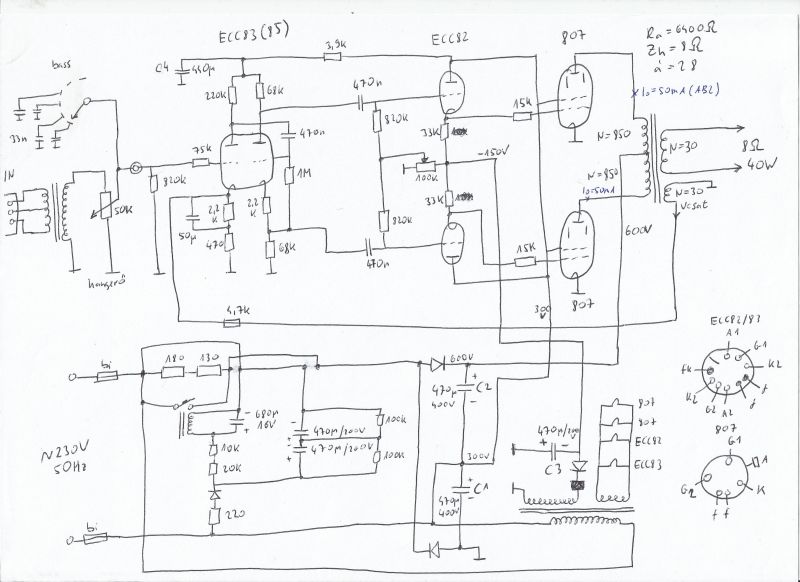 ECC83(85)
3,9k
ECC82
807
Ra=6400Ω
Zh=8Ω
á=28
C4
440µ
bass
220k
68K
470n
15K
x I0=50mA (AB2)
470n
820K
33K
N=850
N=30
8Ω
33n
75K
-150V
40W
IN
820K
1M
100K
N=850
I0=50mA
N=30
50K
2,2
K
2,2
K
33K
50µ
470
68K
820K
600V
hangerő
470n
15K
807
4,7K
300
V
ECC82/83
A1
G1
fk
K2
K2
f
G2
A2
f
bi
180
130
600V
470µ
400V
C2
680µ
16V
470µ/200V
100k
470µ/200V
100k
10K
20K
300V
C1
470µ
400V
C3
807
807
ECC82
ECC83
807
G1
A
G2
K
f
f
N230V
50Hz
220
bi